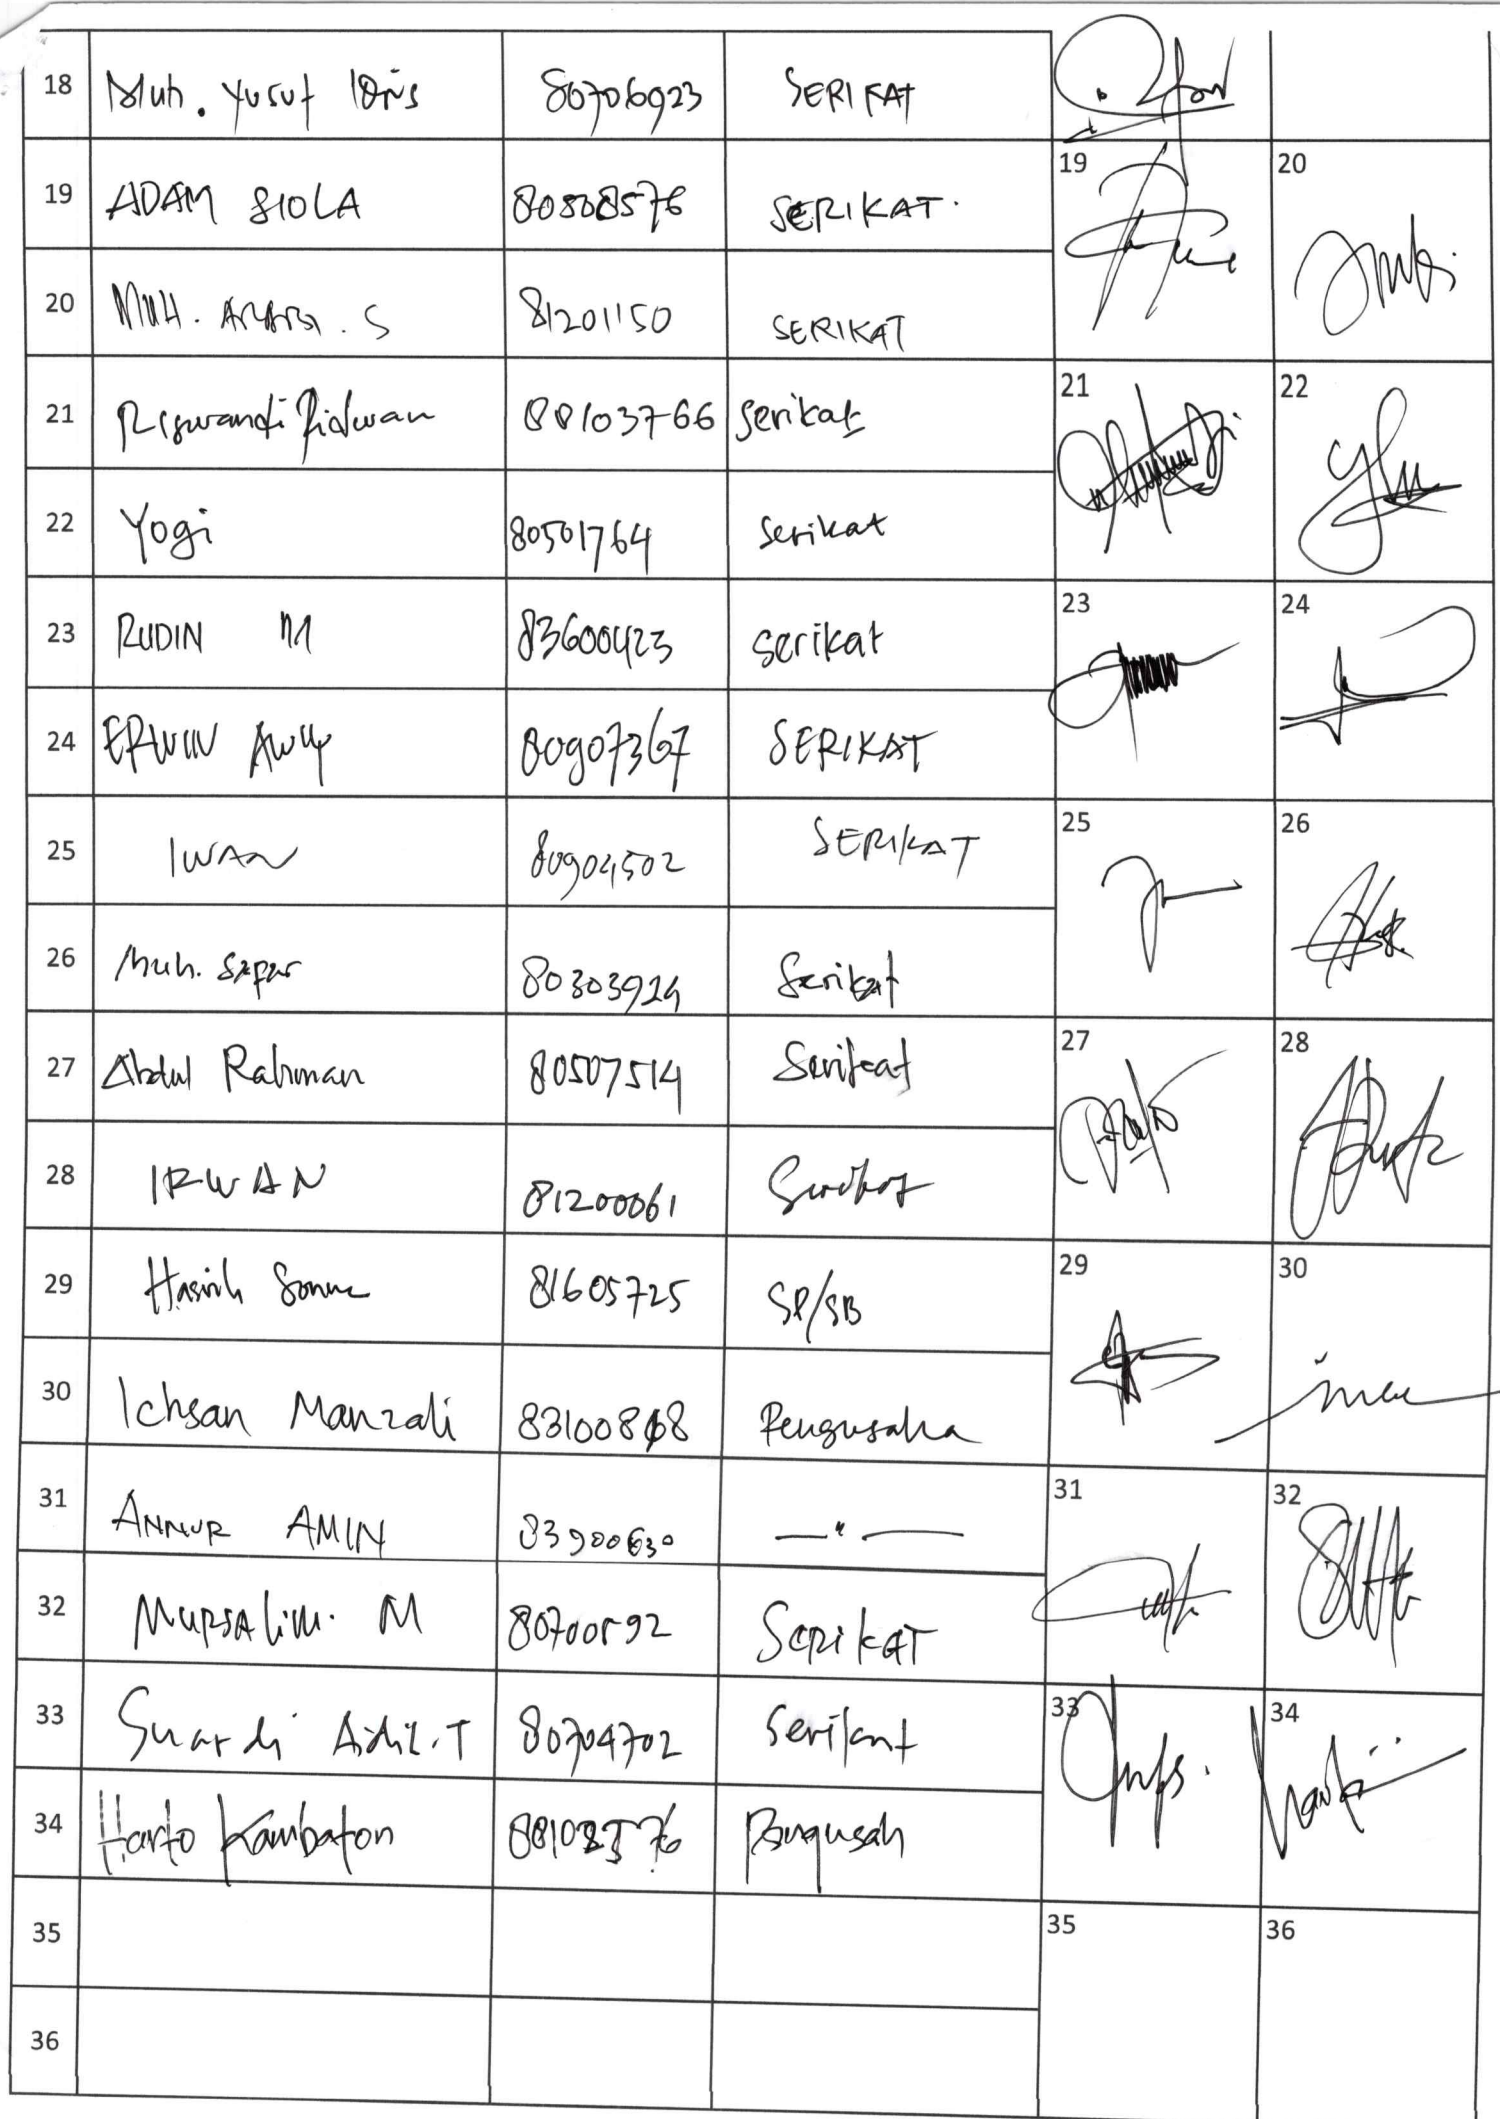 18 Muh. Yusuf Idris 80706923 SERIKAT
19 ADAM SIOLA 80808576 SERIKAT. 19 20
20 MUH. S 81201150 SERIKAT
21 Riswandi Ridwan 88103766 Serikat 21 22
22 Yogi 80501764 Serikat
23 RUDIN M 83600423 Serikat 23 24
24 ERWIN 80907367 SERIKAT
25 IWAN 80904502 SERIKAT 25 26
26 Muh. Sapar 80303924 Serikat
27 Abdul Rahman 80507514 Serikat 27 28
28 IRWAN 81200061 Serikat
29 81605725 SP/SB 29 30
30 Ichsan Manzali Pengusaha
31 ANNUR AMIN 83900630 —"— 31 32
32 MURSALIM. M 80700592 SERIKAT
33 Suardi Aidil.T 80704702 Serikat 33 34
34 Harto Kambaton Pengusah
35 35 36
36